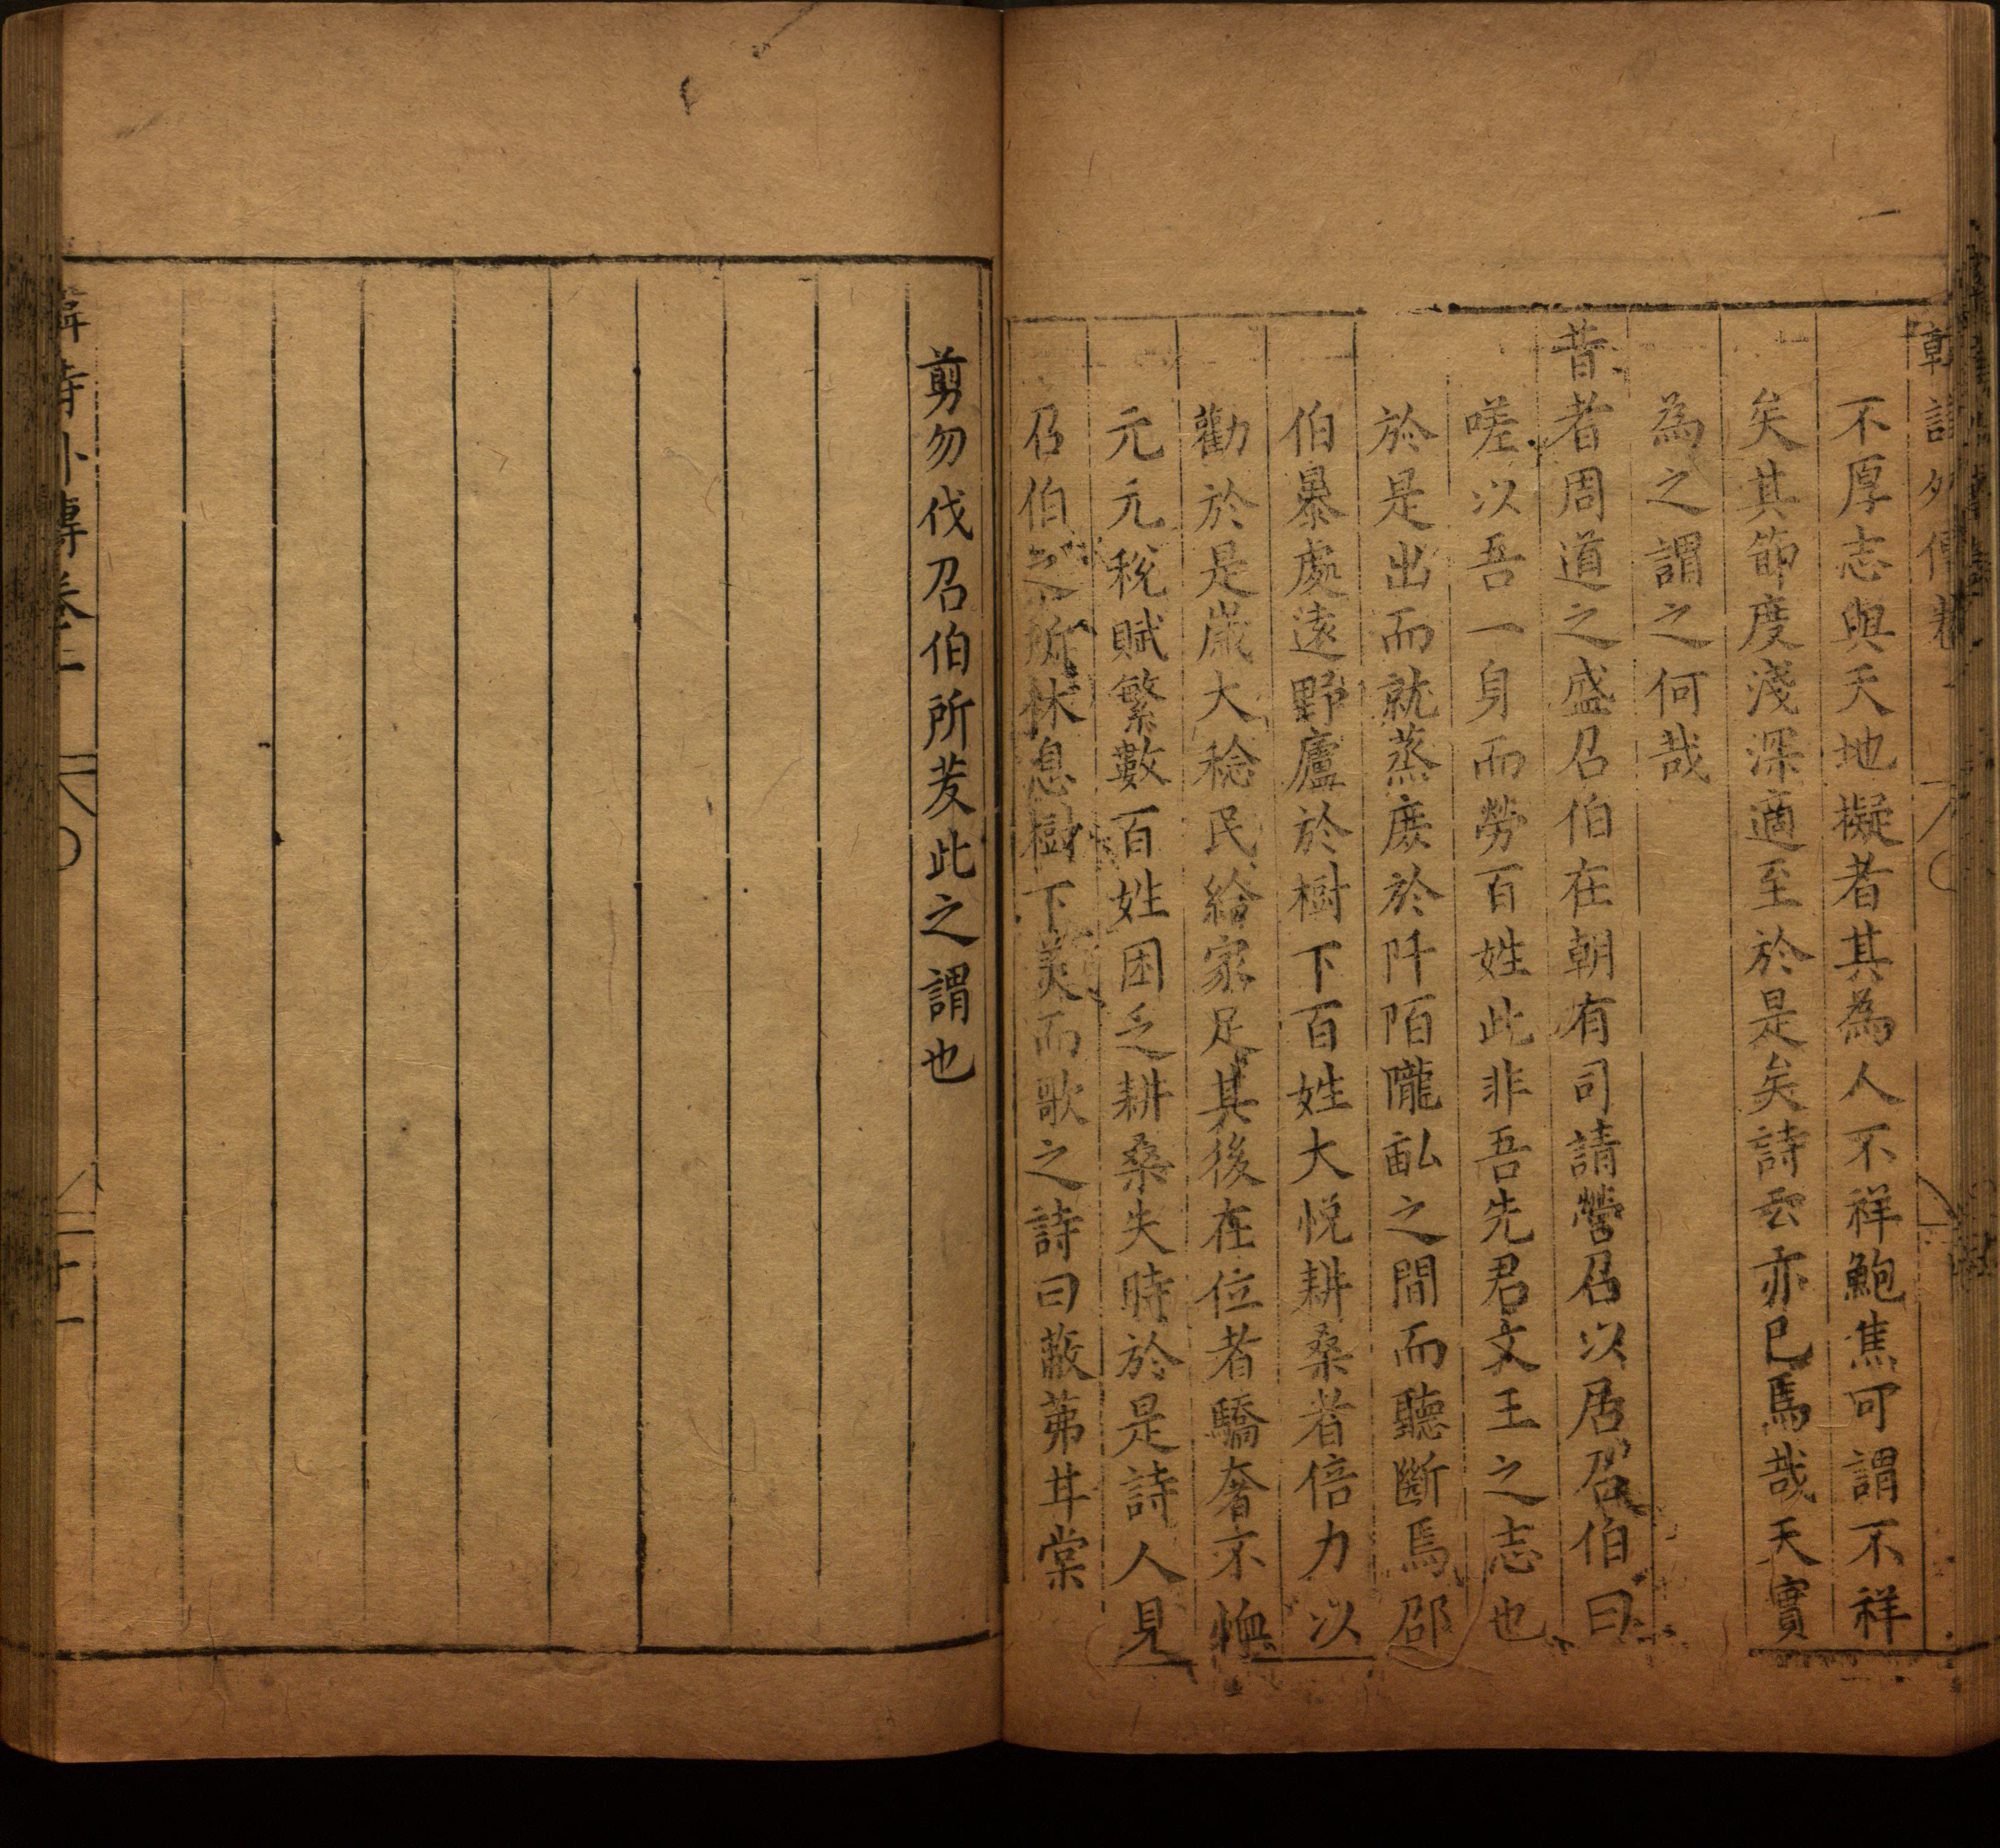 韓詩外傳卷一
不厚志與天地擬者其為人不祥鮑焦可謂不祥
矣其節度淺深適至於是矣詩云亦已焉哉天實
為之謂之何哉
昔者周道之盛召伯在朝有司請營召以居召伯曰
嗟以吾一身而勞百姓此非吾先君文王之志也
於是出而就蒸庶於阡陌隴畝之間而聽斷焉邵
伯暴處遠野廬於樹下百姓大悅耕桑者倍力以
勸於是歲大稔民給家足其後在位者驕奢不恤
元元稅賦繁數百姓困乏耕桑失時於是詩人見
召伯之所休息樹下美而歌之詩曰蔽茀甘棠
剪勿伐召伯所茇此之謂也